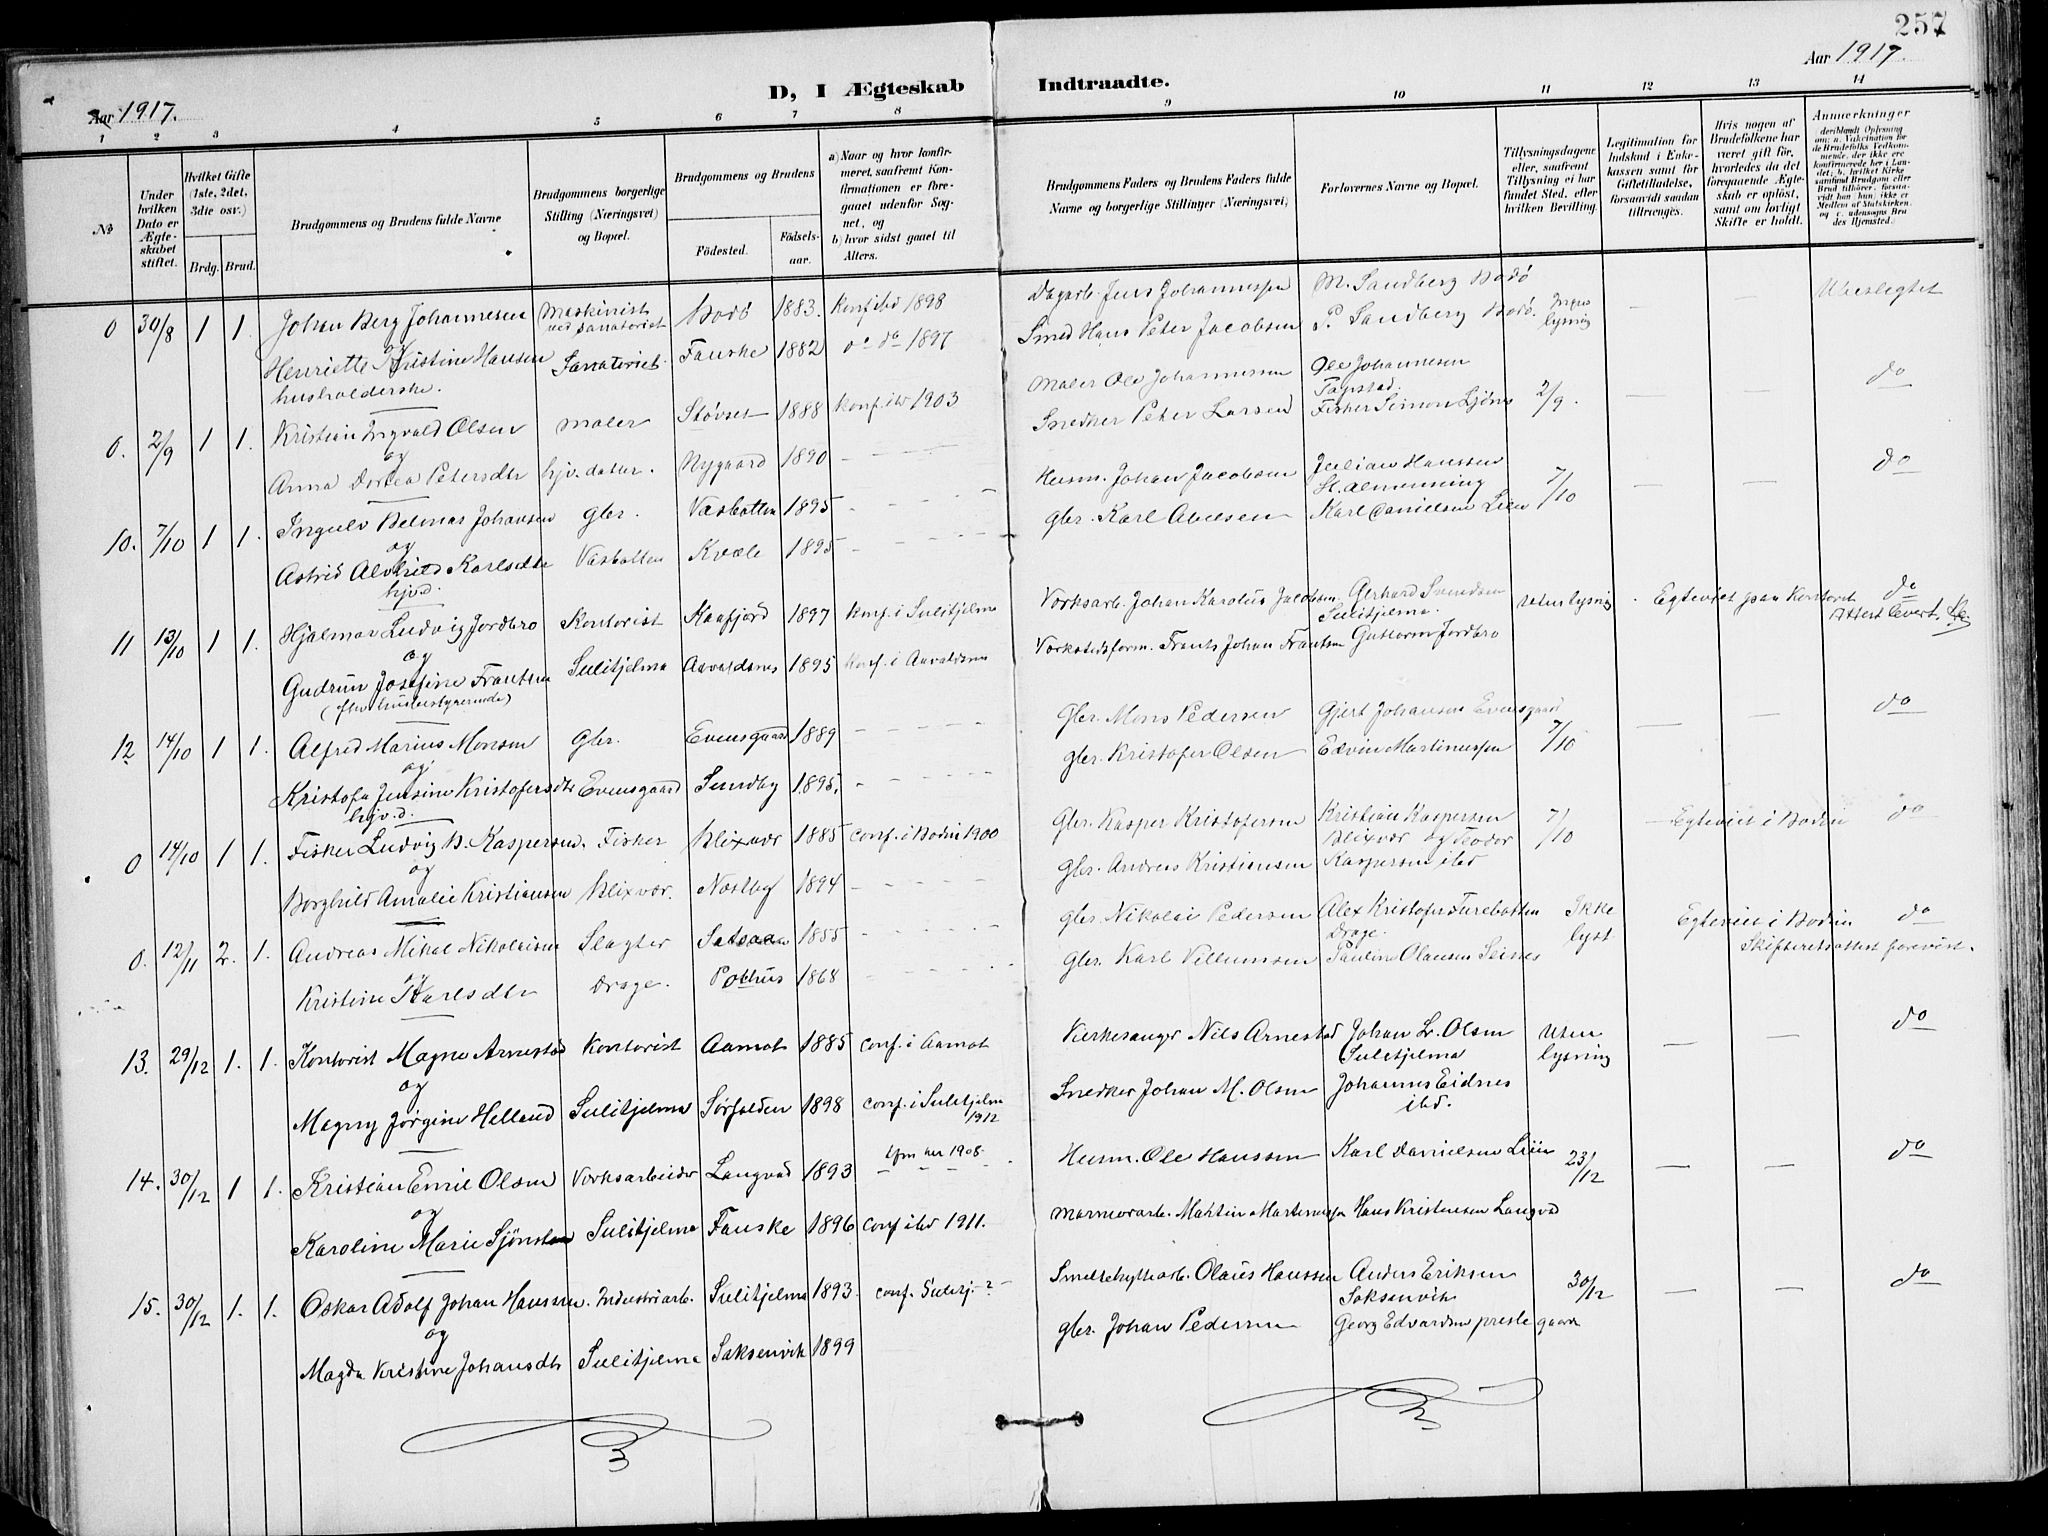 257
Aar 1917.
Aar 1917.
D, I Ægteskab Indtraadte.
1 2 3 4 5 6 7 8 9 10 11 12 13 14
No
Under hvilken Dato er Ægteskabet stiftet.
Hvilket Gifte (1ste, 2det, 3dte osv.)
Brdg. Brud.
Brudgommens og Brudens fulde Navne
Brudgommens borgerlige Stilling (Næringsvei) og Bopæl.
Brudgommens og Brudens
Födested. Födselsaar.
a) Naar og hvor konfirmeret, saafremt Konfirmationen er foregaaet udenfor Sognet, og
b) hvor sidst gaaet til Alters.
Brudgommens Faders og Brudens Faders fulde Navne og borgerlige Stillinger (Næringsvei)
Forlovernes Navne og Bopæl.
Tillysningsdagene eller, saafremt Tillysning ei har fundet Sted, efter hvilken Bevilling.
Legitimation for Indskud i Enkekassen samt for Giftetilladelse, forsaavidt saadan tiltrænges.
Hvis nogen af Brudefolkene har været gift för, hvorledes da det foregaaende Ægteskab er oplöst, samt om lovligt Skifte er holdt.
Anmærkninger
0 30/8 1 1. Johan Berg Johannesen Maskinist ved Sanatoriet Bodö 1883. Konf. ibd 1898 Dagarb. Jens Johannessen M. Sandberg Bodö — — Ubeslegtet
og
Henriette Kristine Hansen Sanatoriet Fauske 1882 do do 1897 Smed Hans Peter Jacobsen P. Sandberg Bodö. Ingen lysning
husholderske.
0. 2/9 1 1. Kristian Ingvald Olsen maler Stövset 1888 Konf. ibd 1903 Maler Ole Johannessen Ole Johannesen 2/9. — — do
og
Anna Dortea Petersdtr hjv. datter. Nygaard 1890 — Snedker Peter Larsen Fisker Simon
10. 7/10 1 1. Ingulv Helmar Johansen Gbr. Vasbotten 1895 — Husm. Johan Jacobsen Julian Hanssen St. almenning 7/10 — — do
og
Astrid Karlsdtr Vasbotten Kvæle 1895 — Gbr. Karl Abelsen Karl Danielsen Lien
hjvd.
11 13/10 1 1. Hjalmar Ludvig Jordbro Kontorist Kaafjord 1897 Konf. i Sulitjelma Verksarb. Johan Karolus Jacobsen. Gerhard Svendsen Sulitjelma. Uten lysning Egteviet paa Kontoret do
og
Gudrun Josefine Frantsen Sulitjelma Aavaldsnes 1895 Konf. i Aavaldsnes Verkstedsform. Frants Johan Frantsen Guttorm Jordbro
12 14/10 1 1. Alfred Marius Monsen Gbr. Evensgaard 1889 — Gbr. Mons Pedersen Gjert Johansen Evensgaard 7/10 — — do
og
Kristofa Jensine Kristofersdtr Evensgaard Sundby 1895. — Gbr. Kristofer Olsen Edvin Martinussen
hjv.d.
0 14/10 1 1. Fisker Ludvig B. Kaspersen. Fisker Blixvær 1885 Conf. i Bodin 1900 Gbr. Kasper Kristofersen Kristian Kaspersen Blixvær og Teodor 7/10 — Egteviet i Bodin do
og
Borghild Amalie Kristiansen Blixvær. Nestby 1894 — Gbr. Andreas Kristiansen Kaspersen ibd
0. 12/11 2. 1. Andreas Mikal Nikolaisen Slagter 1855 — Gbr. Nikolai Pedersen Alex Kristofers Drage. Ikke lyst Egteviet i Bodin do
og
Kristine Karlsdtr Drage. Pothus 1868 Gbr. Karl Villumsen Pauline Olausen Seines Skifteretsattest forevist.
13. 29/12 1. 1. Kontorist Magne Arnestad Kontorist Aamot 1885 Conf. i Aamot Kirkesanger Nils Arnestad Johan L. Olsen Sulitjelma Uten lysning — — do
og
Magny Jørgine Helland Sulitjelma Sørfolden 1898 Conf. i Sulitjelma 1912 Snedker Johan M. Olsen Johannes Eidnes ibd.
14. 30/12 1 1. Kristian Emil Olsen Verksarbeider Langvad 1893 her 1908 Husm. Ole Hanssen Karl Danielsen Lien 23/12 — — do
og
Karoline Marie Sjönstaa Sulitjelma Fauske 1896 Conf ibd 1911. Marmorarb. Martin Martinussen Hans Kristensen Langvad
15. 30/12 1. 1. Oskar Adolf Johan Hanssen. Industriarb. Sulitjelma 1893. conf. Sulitj. ? Smeltehyttearb. Olaus Hanssen Anders Eriksen Saksenvik 30/12 — — do
og
Magda Kristine Johansdtr Sulitjelma Saksenvik 1899 Gbr. Johan Pedersen Georg Edvardsen prestegaard